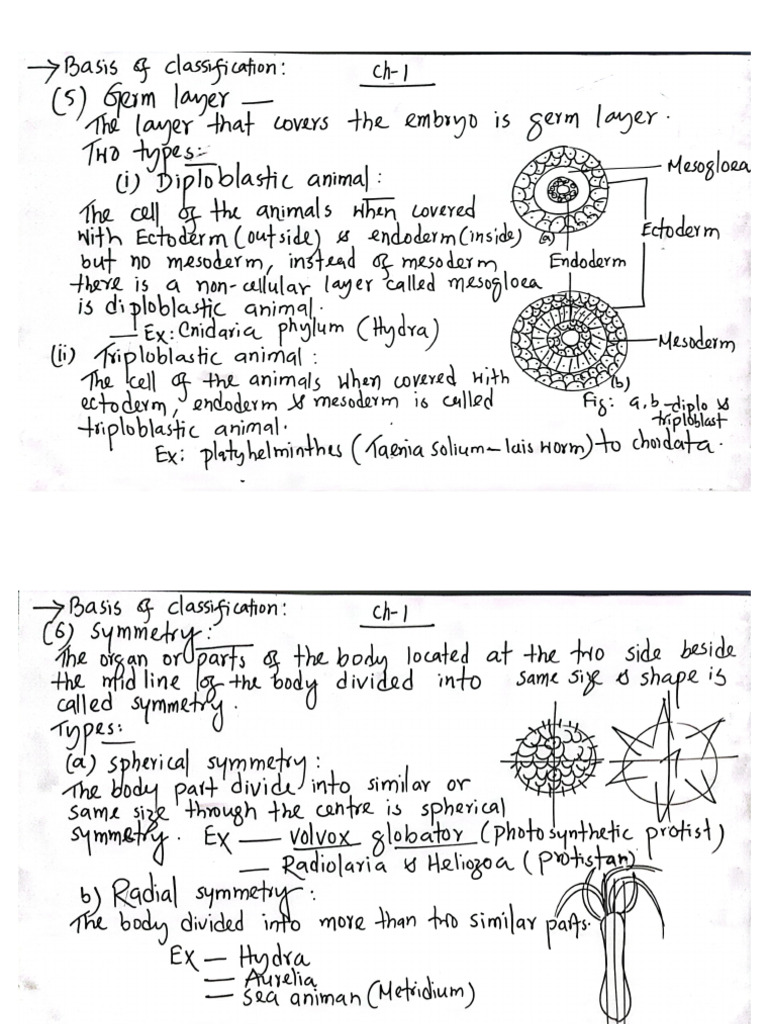 → Basis of classification: Ch-1
(5) Germ layer —
The layer that covers the embryo is germ layer.
Two types:-
(i) Diploblastic animal:
Mesogloea
The cell of the animals when covered
with Ectoderm (outside) & endoderm (inside)
(a)
Ectoderm
but no mesoderm, instead of mesoderm
Endoderm
there is a non-cellular layer called mesogloea
is diploblastic animal.
— Ex: Cnidaria phylum (Hydra)
Mesoderm
(ii) Triploblastic animal:
The cell of the animals when covered with
(b)
ectoderm, endoderm & mesoderm is called
Fig: a, b - diplo &
triploblast
triploblastic animal.
Ex: platyhelminthes (Taenia solium - luis worm) to chordata.
→ Basis of classification: Ch-1
(6) Symmetry:
The organ or parts of the body located at the two side beside
the mid line of the body divided into same size & shape is
called symmetry.
Types:
(a) spherical symmetry:
The body part divide into similar or
same size through the centre is spherical
symmetry. Ex — Volvox globator (photosynthetic protist)
— Radiolaria & Heliozoa (protistan)
b) Radial symmetry:
The body divided into more than two similar parts.
Ex — Hydra
— Aurelia
— sea animan (Metridium)